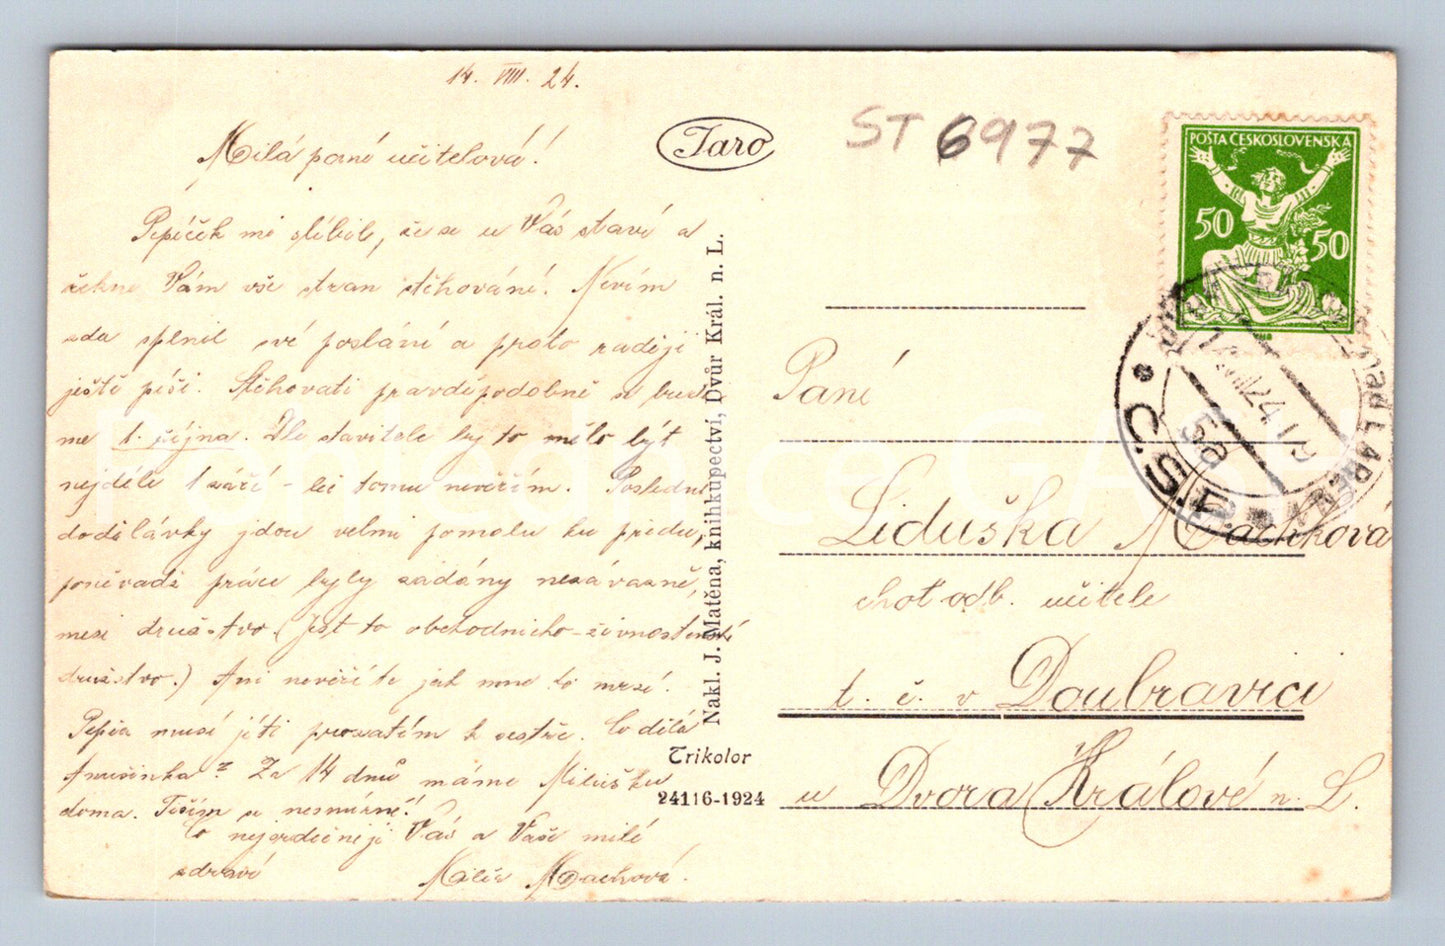 14. VIII. 24.
Milá paní učitelová!
Pepíček mi slíbil, že se u Vás staví a
řekne Vám vše stran stěhování. Nevím
zda splnil své poslání a proto raději
ještě píši. Stěhovati pravděpodobně se bude
me 1. října. Dle stavitele by to mělo být
nejdéle 1 září - leč tomu nevěřím. Poslední
dodělávky jdou velmi pomalu ku předu,
poněvadž práce byly zadány nezávazně,
mezi družstvo. (Jest to obchodnicko-živnostenské
družstvo.) Ani nevěříte jak mne to mrzí.
Pepča musí jeti prozatím k sestře. Co dělá
Anušinka? Za 14 dnů máme Milušku
doma. Těším se nesmírně!
Co nejsrdečněji Vás a Vaše milé
zdraví Machová.
Taro
ST 6977
POŠTA ČESKOSLOVENSKÁ
50 50
nad LABEM
Č.S.P.
VIII 24
Nakl. J. Matěna, knihkupectví, Dvůr Král. n. L.
Trikolor
24116-1924
Paní
Liduška Machková
choť odb. učitele
t. č. v Doubravici
u Dvora Králové n. L.
Pohlednice GAS